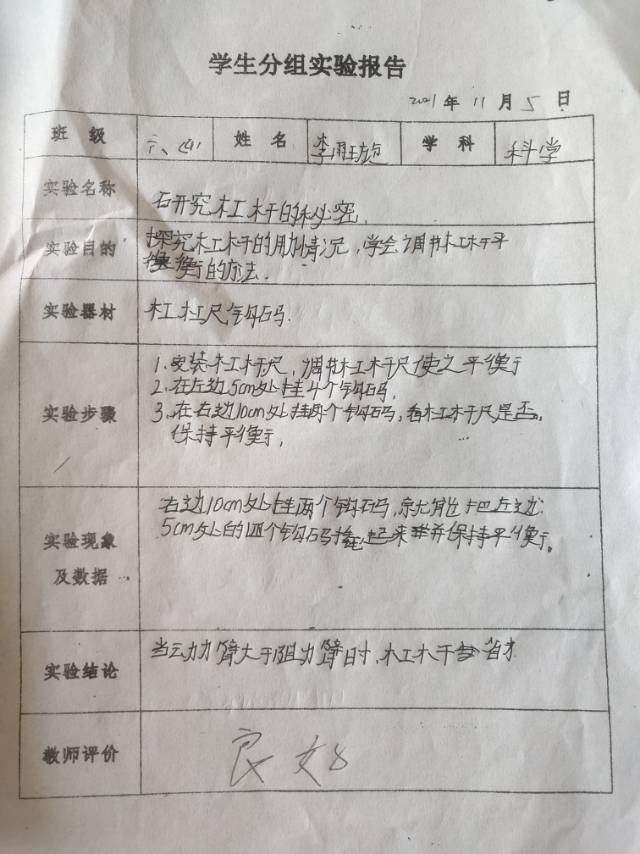 学生分组实验报告
2021年11月5日
班级 六、四 姓名 李 学科 科学
实验名称 研究杠杆的秘密.
实验目的 探究杠杆的用力情况,学会调节杠杆平
衡的方法.
实验器材 杠杆尺钩码.
实验步骤 1.安装杠杆尺,调节杠杆尺使之平衡
2.在左边5cm处挂4个钩码,
3.在右边10cm处挂两个钩码,看杠杆尺是否
保持平衡,
实验现象及数据 右边10cm处挂两个钩码,就能把左边
5cm处的四个钩码 起来并保持平衡.
实验结论 当动力臂大于阻力臂时,杠杆会省力
教师评价 良好